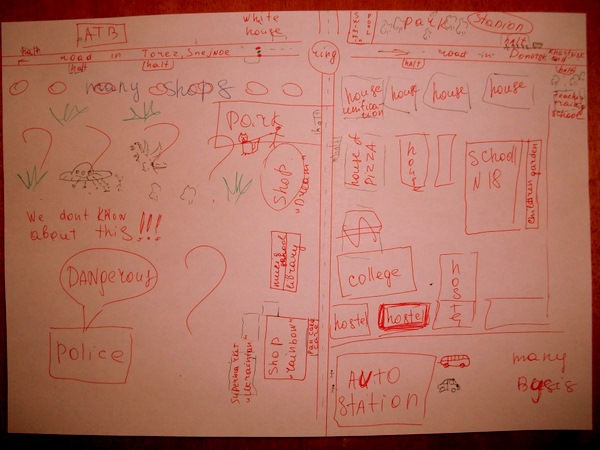 ATB
white
house
park
Stadion
halt
road in Torez, Snejnoe
halt
(halt
ring
halt
road in Donetsk
halt
many shops
park
house
unification
house
house
house
Teacher
training
school
halt
house of
PIZZA
house
School
N 18
children garden
Shop
"Dream"
We dont know
about this!!!
DANgerous
police
music school
library
$
college
hostel
hostel
hostel
Supermarket
"Ukrainian"
Shop
"rainbow"
pancake
cafe
AUTO
STATION
many
Bysis